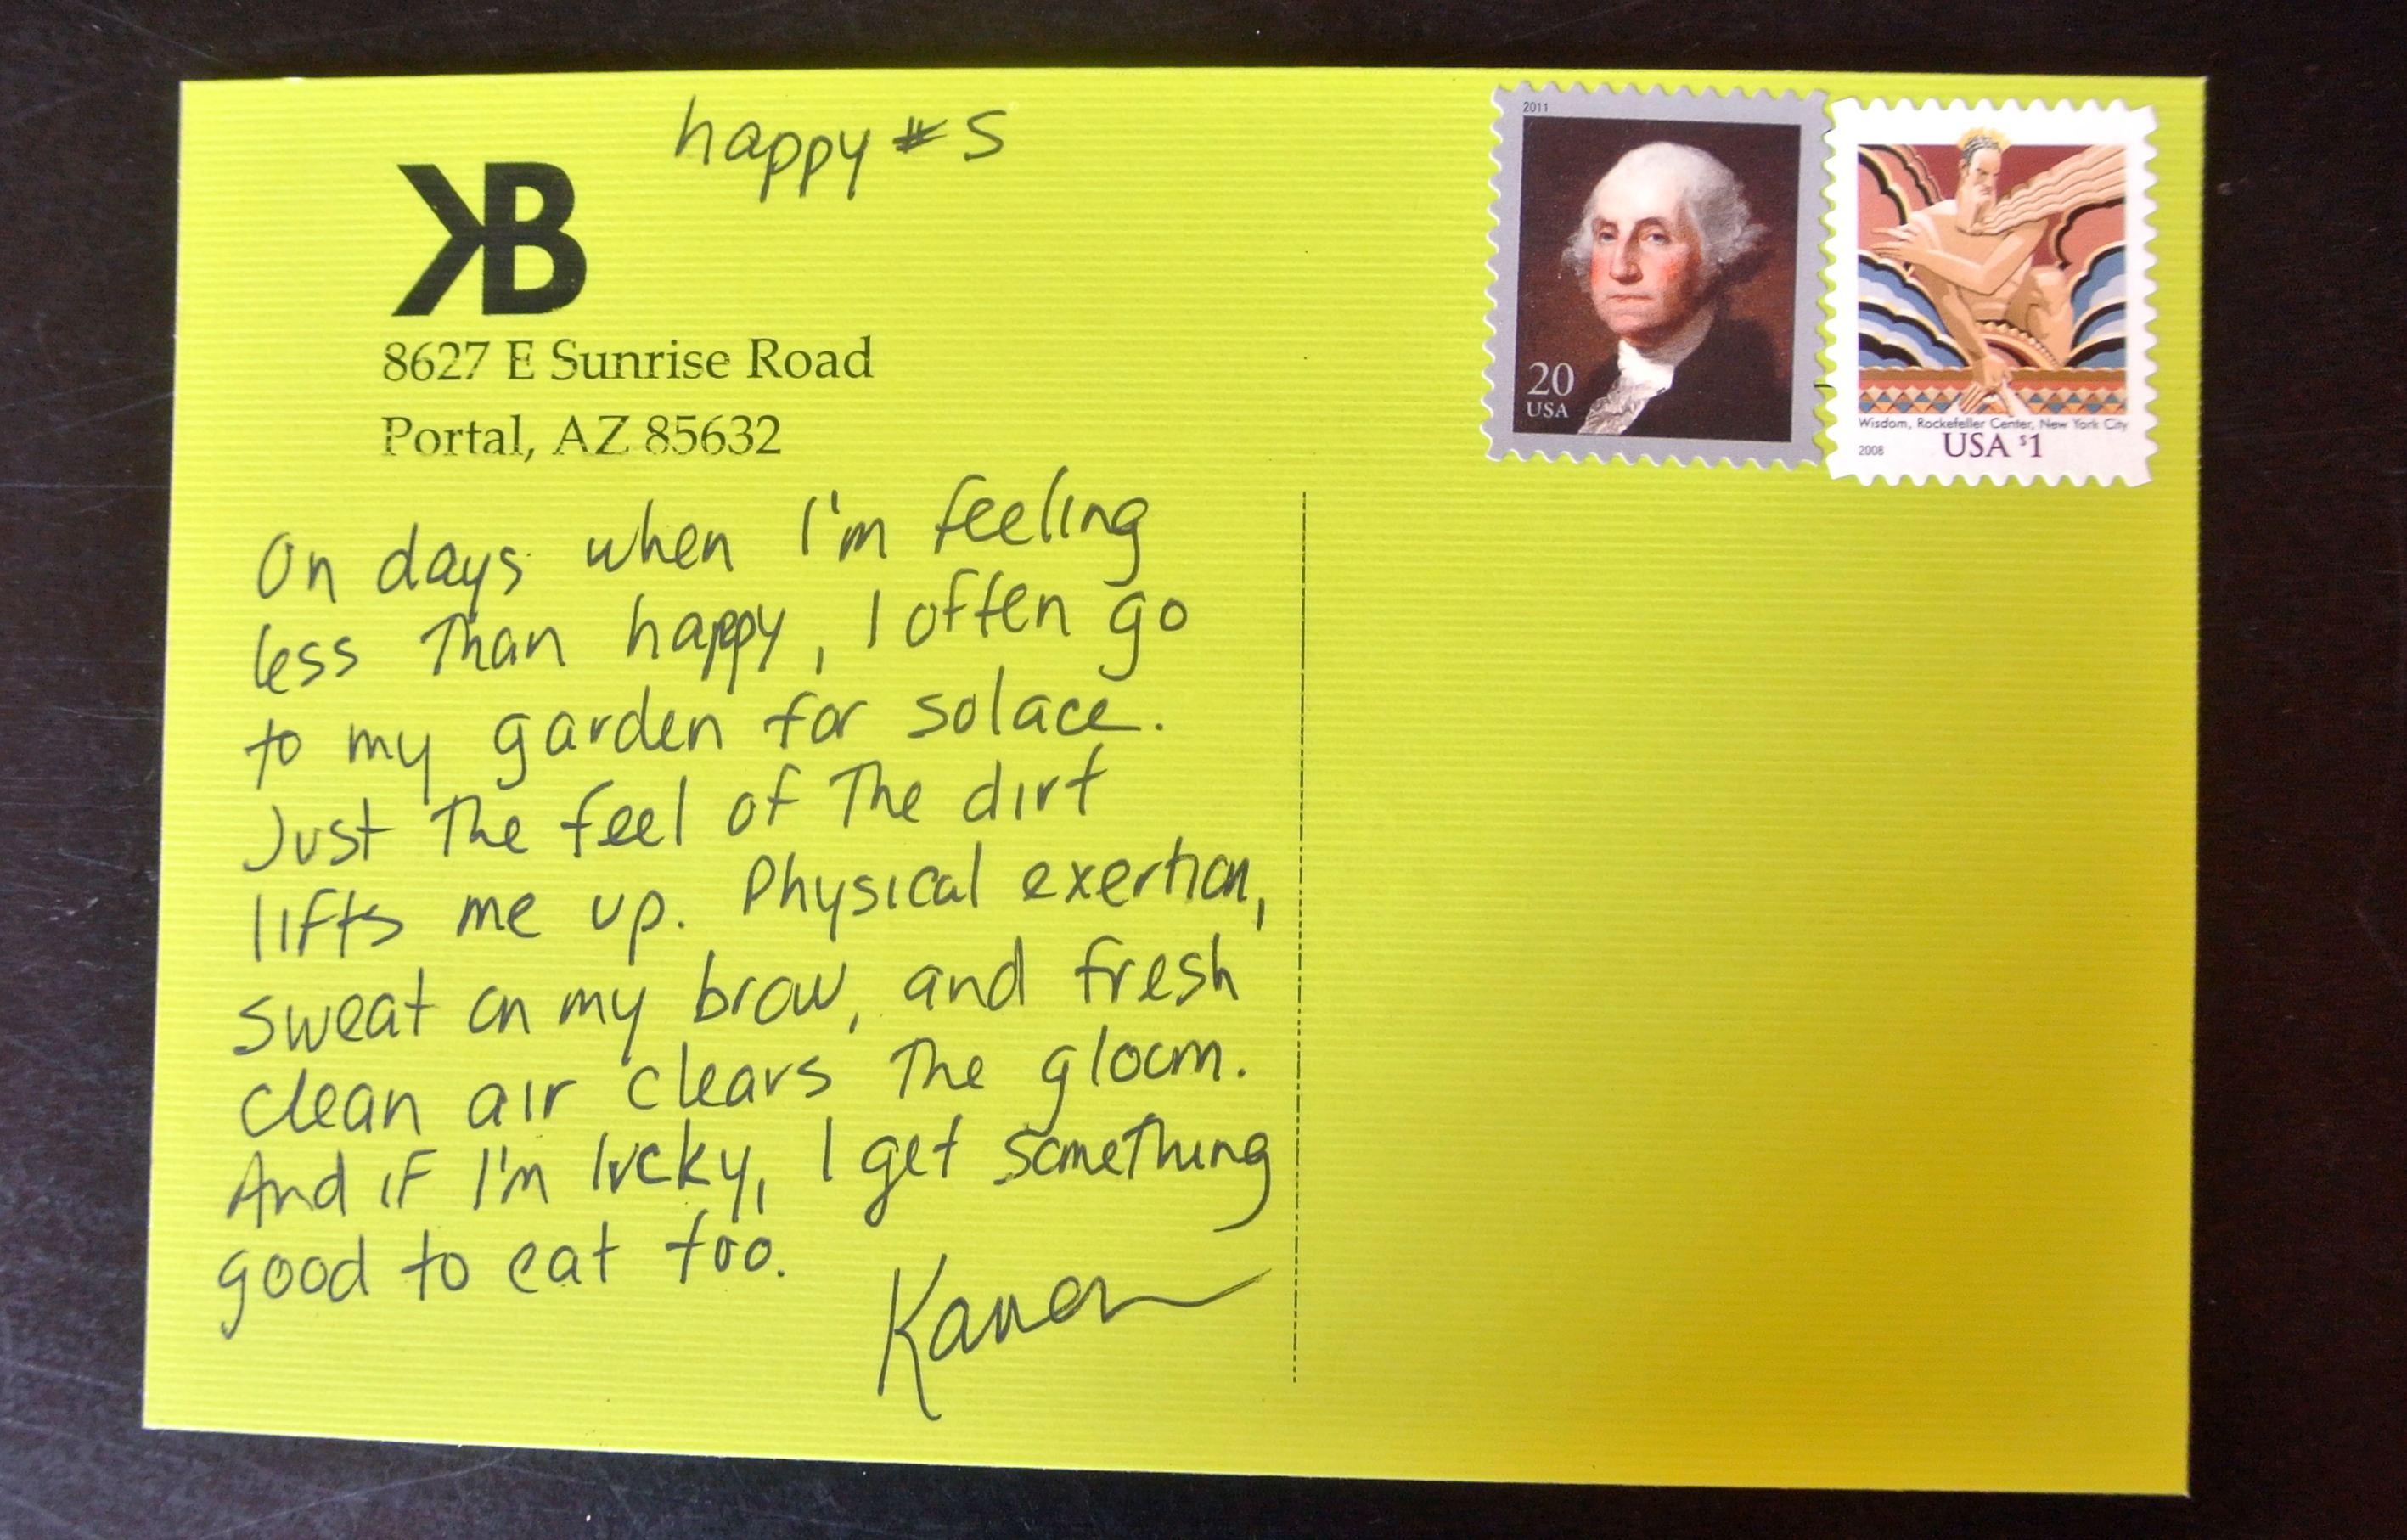 happy #5
KB
8627 E Sunrise Road
Portal, AZ 85632
On days when I'm feeling
less than happy, I often go
to my garden for solace.
Just the feel of the dirt
lifts me up. Physical exertion,
sweat on my brow, and fresh
clean air clears the gloom.
And if I'm lucky, I get something
good to eat too.
Karen
2011
20
USA
Wisdom, Rockefeller Center, New York City
2008
USA $1